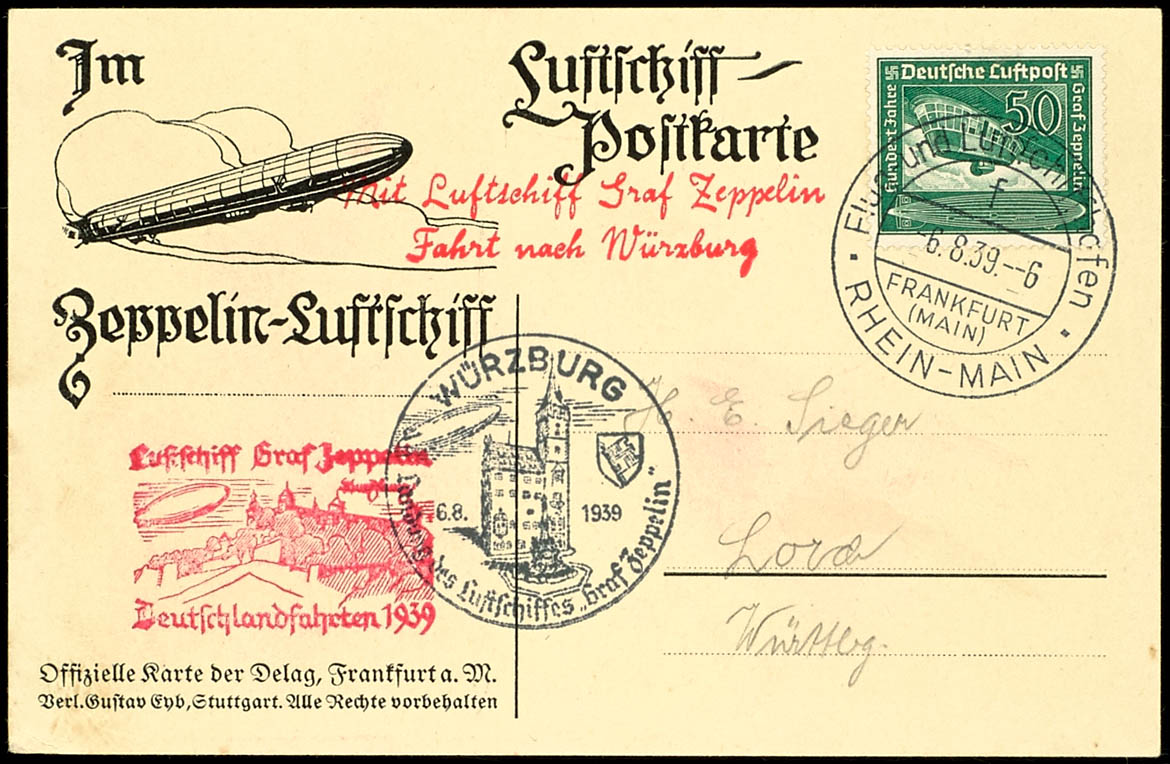 Im
Luftschiff-
Postkarte
Mit Luftschiff Graf Zeppelin
Fahrt nach Würzburg
Zeppelin-Luftschiff
Deutsche Luftpost
Hundert Jahre
50
Graf Zeppelin
Flug- und Luftschiffhafen
f
-6.8.39.--6
FRANKFURT
(MAIN)
RHEIN-MAIN
WÜRZBURG
6.8. 1939
Landung des Luftschiffes „Graf Zeppelin"
H. E. Sieger
Lorch
Württbg.
Luftschiff Graf Zeppelin
Deutschlandfahrten 1939
Offizielle Karte der Delag, Frankfurt a. M.
Verl. Gustav Eyb, Stuttgart. Alle Rechte vorbehalten